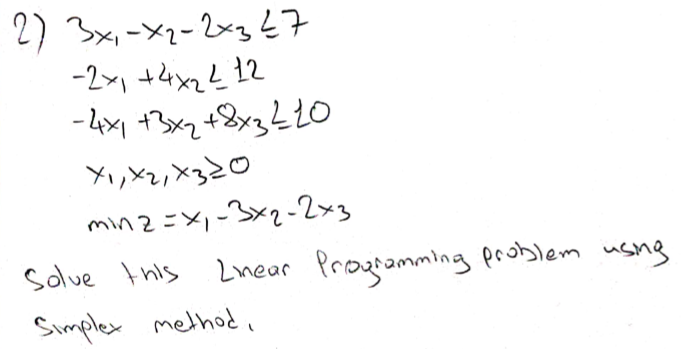 2) 3x₁-x₂-2x₃≤7
-2x₁+4x₂≤12
-4x₁+3x₂+8x₃≤10
x₁,x₂,x₃≥0
min z=x₁-3x₂-2x₃
Solve this Linear Programming problem using
Simplex method.